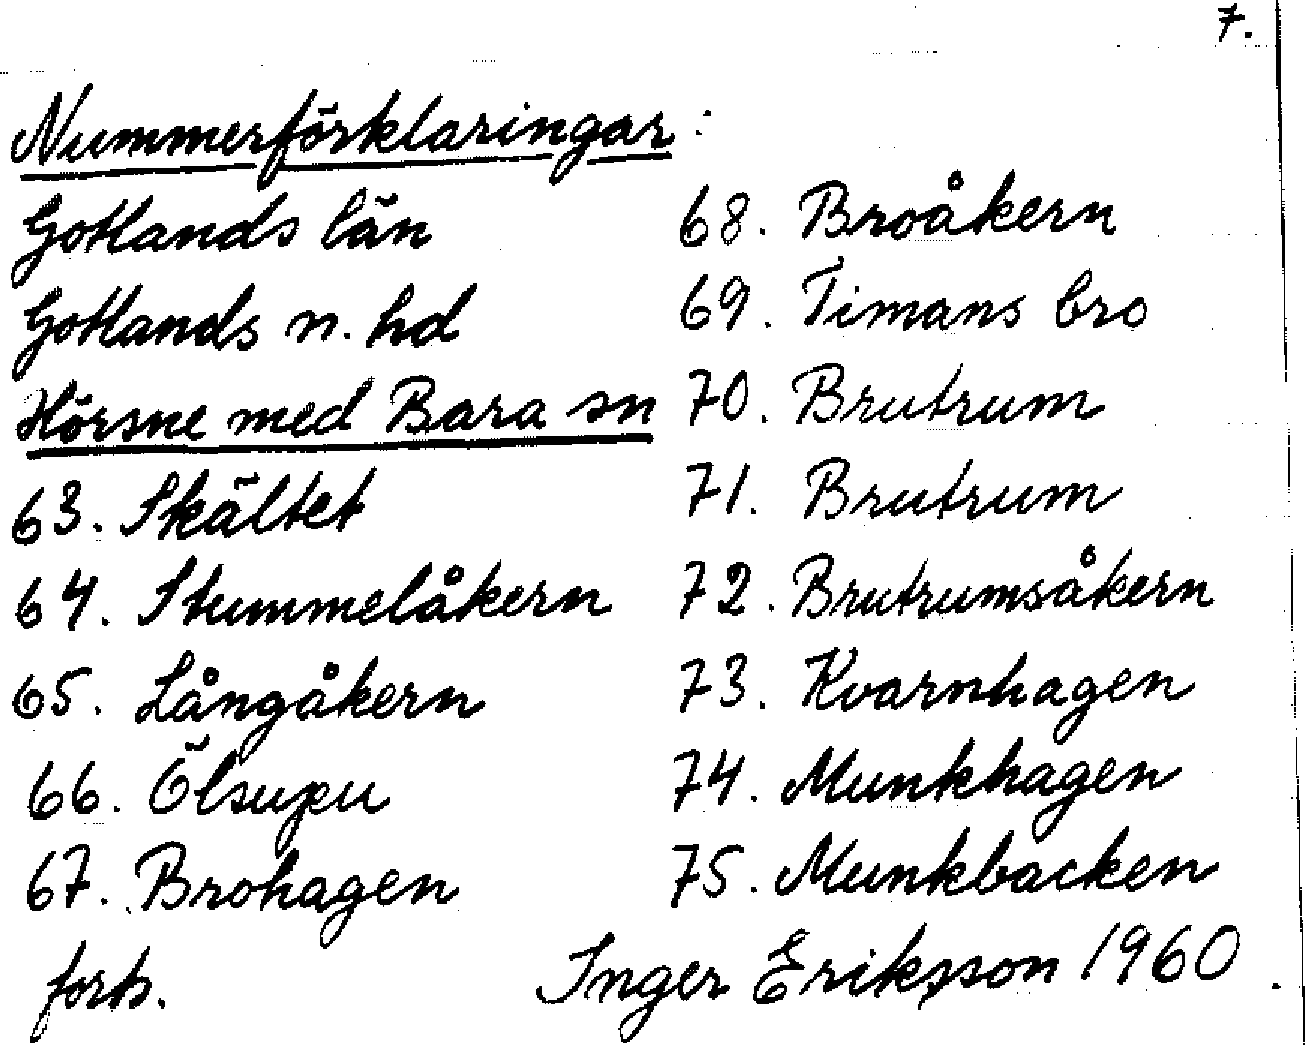 7.
Nummerförklaringar:
Gotlands län
Gotlands n. hd
Hörsne med Bara sn
63. Skältet
64. Stummelåkern
65. Långåkern
66. Ölsupu
67. Brohagen
68. Broåkern
69. Timans bro
70. Brutrum
71. Brutrum
72. Brutrumsåkern
73. Kvarnhagen
74. Munkhagen
75. Munkbacken
forts.
Inger Eriksson 1960.